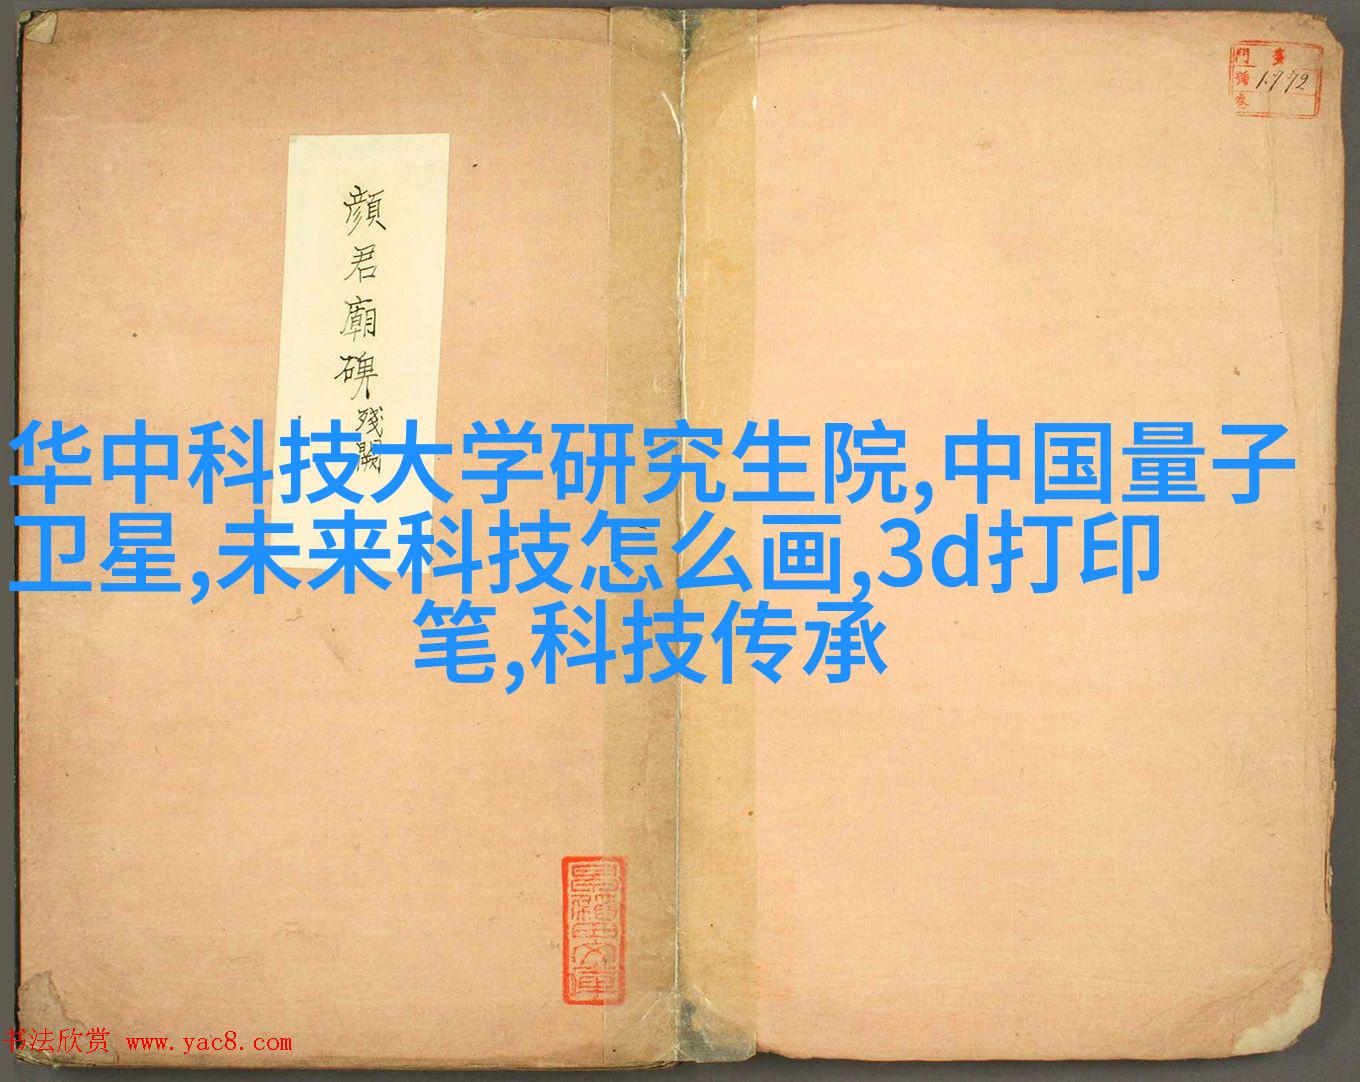 門 号
號 1772
巻
顔君廟碑残闕
华中科技大学研究生院,中国量子
卫星,未来科技怎么画,3d打印
笔,科技传承
书法欣赏 www.yac8.com